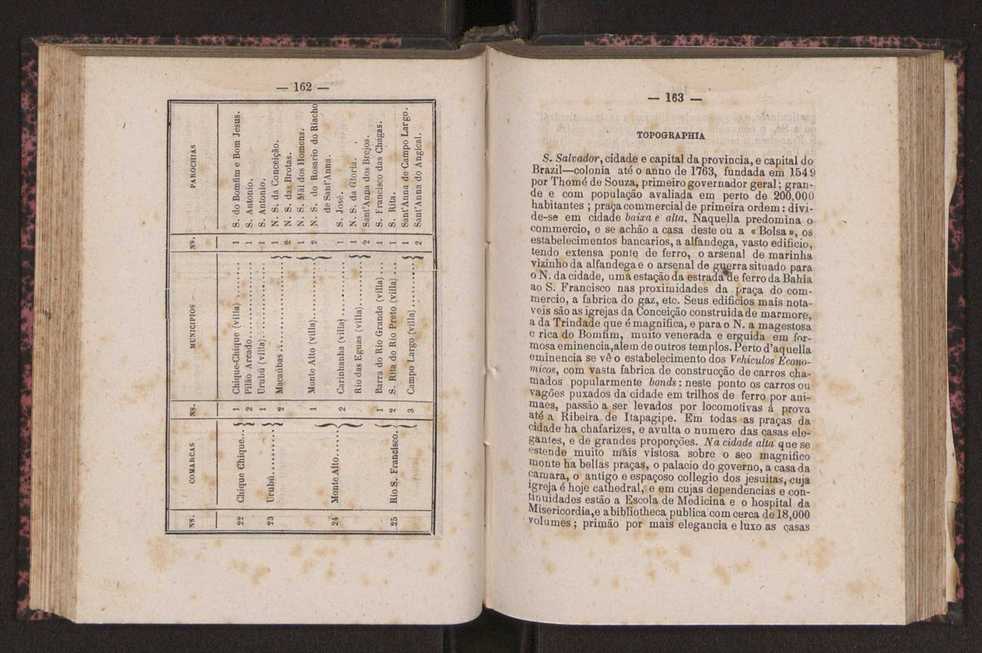 — 162 —
NS. COMARCAS NS. MUNICIPIOS NS. PAROCHIAS
22 Chique Chique... 1 Chique-Chique (villa).... 1 S. do Bomfim e Bom Jesus.
2 Pilão Arcado............ 1 S. Antonio.
23 Urubú.......... 1 Urubú (villa)............ 1 S. Antonio.
2 Macaúbas............ 1 N. S. da Conceição.
2 N. S. das Brotas.
24 Monte Alto...... 1 Monte Alto (villa)........ 1 N. S. Mãi dos Homens.
2 N. S. do Rosario do Riacho
de Sant'Anna.
2 Carinhanha (villa)........ 1 S. José.
Rio das Eguas (villa)..... 1 N. S. da Gloria.
2 Sant'Anna dos Brejos.
25 Rio S. Francisco. 1 Barra do Rio Grande (villa) ... 1 S. Francisco das Chagas.
2 S. Rita do Rio Preto (villa) ... 1 S. Rita.
3 Campo Largo (villa)...... 1 Sant'Anna de Campo Largo.
2 Sant'Anna do Angical.
— 163 —
TOPOGRAPHIA
S. Salvador, cidade e capital da provincia, e capital do
Brazil—colonia até o anno de 1763, fundada em 1549
por Thomé de Souza, primeiro governador geral; gran-
de e com população avaliada em perto de 200,000
habitantes; praça commercial de primeira ordem: divi-
de-se em cidade baixa e alta. Naquella predomina o
commercio, e se achão a casa deste ou a «Bolsa», os
estabelecimentos bancarios, a alfandega, vasto edificio,
tendo extensa ponte de ferro, o arsenal de marinha
vizinho da alfandega e o arsenal de guerra situado para
o N. da cidade, uma estação da estrada de ferro da Bahia
ao S. Francisco nas proximidades da praça do com-
mercio, a fabrica do gaz, etc. Seus edificios mais nota-
veis são as igrejas da Conceição construida de marmore,
a da Trindade que é magnifica, e para o N. a magestosa
e rica do Bomfim, muito venerada e erguida em for-
mosa eminencia, alem de outros templos. Perto d'aquella
eminencia se vê o estabelecimento dos Vehiculos Econo-
micos, com vasta fabrica de construcção de carros cha-
mados popularmente bonds: neste ponto os carros ou
vagões puxados da cidade em trilhos de ferro por ani-
maes, passão a ser levados por locomotivas á prova
até a Ribeira de Itapagipe. Em todas as praças da
cidade ha chafarizes, e avulta o numero das casas ele-
gantes, e de grandes proporções. Na cidade alta que se
estende muito mais vistosa sobre o seo magnifico
monte ha bellas praças, o palacio do governo, a casa da
camara, o antigo e espaçoso collegio dos jesuitas, cuja
igreja é hoje cathedral, e em cujas dependencias e con-
tinuidades estão a Escola de Medicina e o hospital da
Misericordia, e a bibliotheca publica com cerca de 18,000
volumes; primão por mais elegancia e luxo as casas